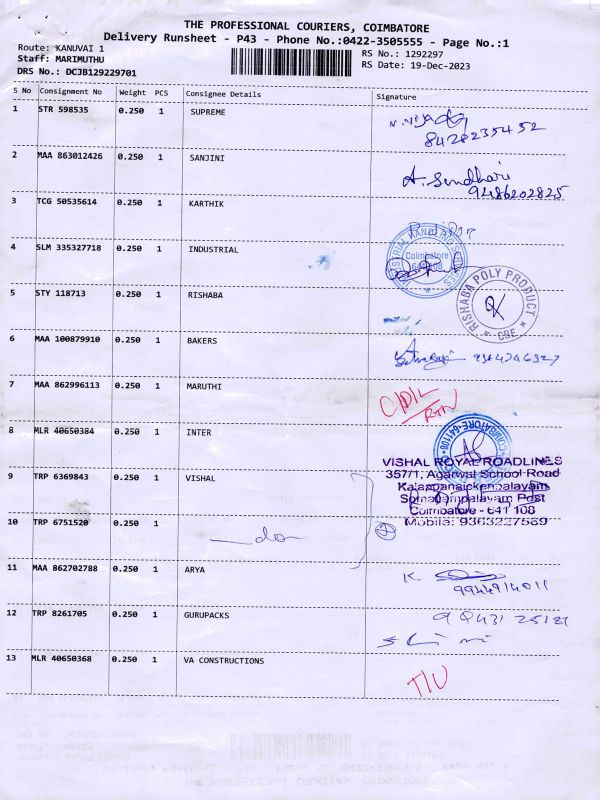 THE PROFESSIONAL COURIERS, COIMBATORE
Delivery Runsheet - P43 - Phone No.:0422-3505555 - Page No.:1
Route: KANUVAI 1
Staff: MARIMUTHU
DRS No.: DCJB129229701
RS No.: 1292297
RS Date: 19-Dec-2023
S No Consignment No Weight PCS Consignee Details Signature
1 STR 598535 0.250 1 SUPREME
8428235452
2 MAA 863012426 0.250 1 SANJINI A. Sundhari
9486202825
3 TCG 50535614 0.250 1 KARTHIK
4 SLM 335327718 0.250 1 INDUSTRIAL
Coimbatore
5 STY 118713 0.250 1 RISHABA
RISHABA POLY PRODUCT
* CBE *
6 MAA 100879910 0.250 1 BAKERS
7 MAA 862996113 0.250 1 MARUTHI
RTN
8 MLR 40650384 0.250 1 INTER
COIMBATORE-641108
9 TRP 6369843 0.250 1 VISHAL
VISHAL ROYAL ROADLINES
357/1, Agarwal School Road
Kalappanaickenpalayam
Somayampalayam Post
Coimbatore - 641 108
Mobile: 9363227589
10 TRP 6751520 0.250 1
do
11 MAA 862702788 0.250 1 ARYA K.
9944914011
12 TRP 8261705 0.250 1 GURUPACKS
13 MLR 40650368 0.250 1 VA CONSTRUCTIONS